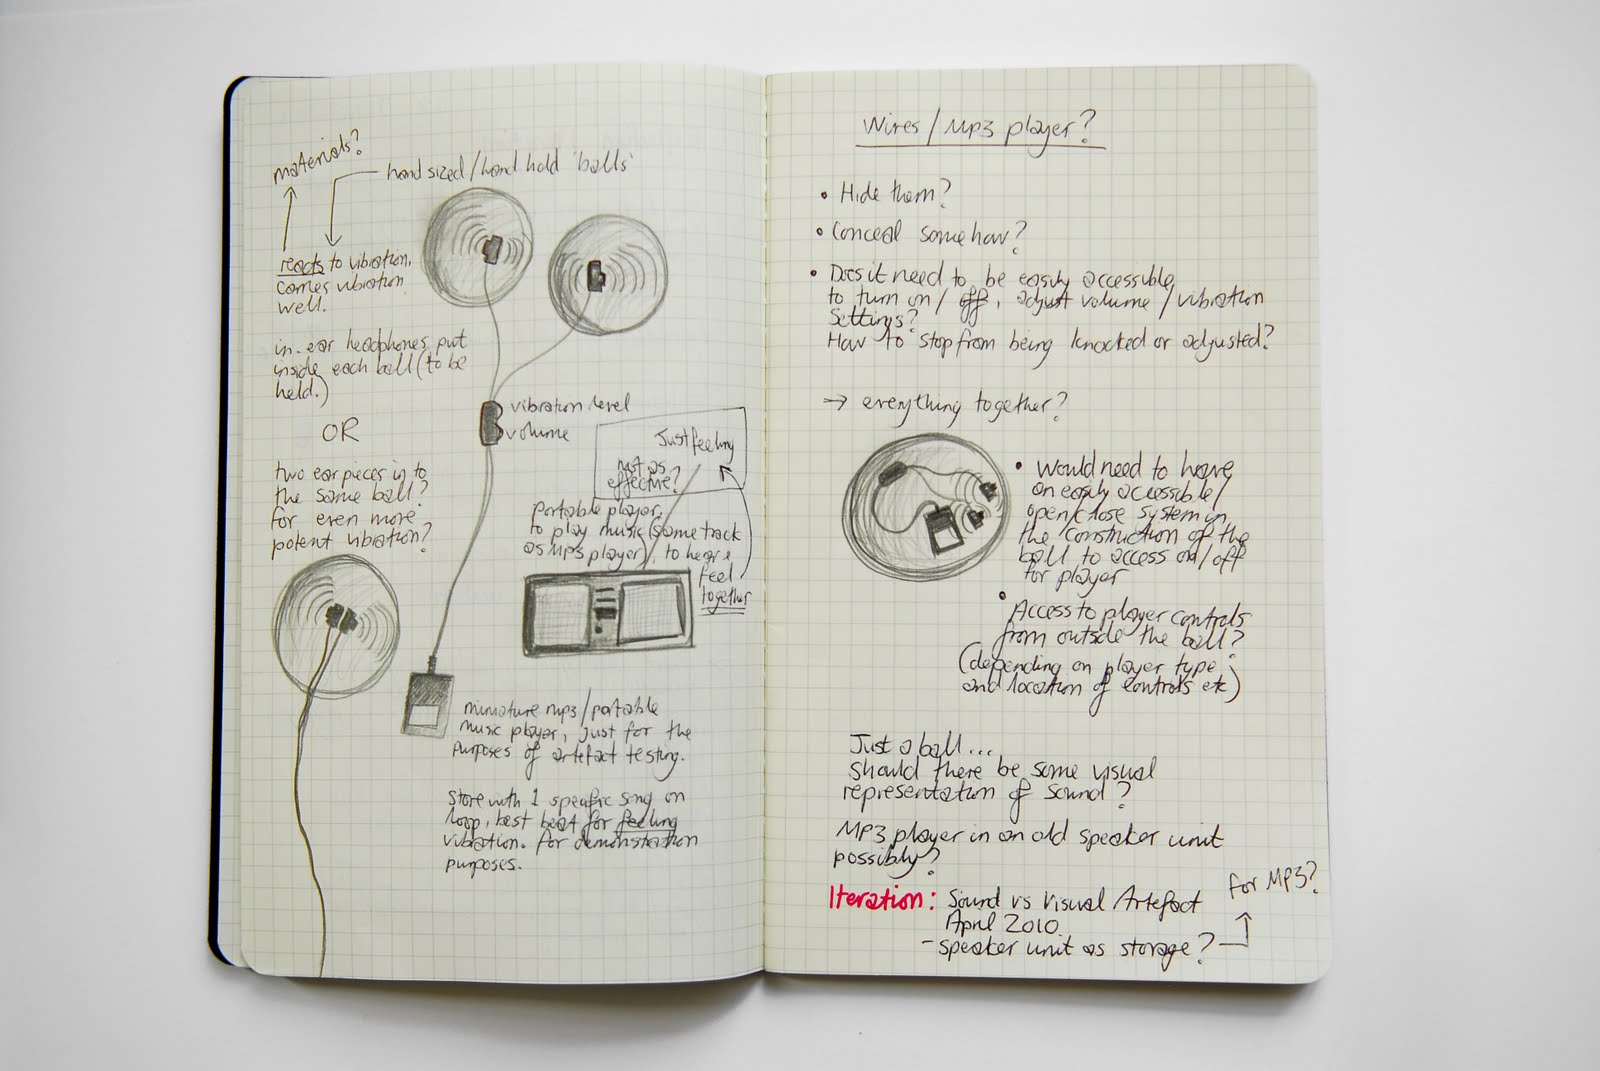 materials?
hand sized/hand hold 'balls'
reacts to vibration,
comes vibration
well.
in-ear headphones put
inside each ball (to be
held.)
OR
two ear pieces in to
the same ball?
for even more
potent vibration?
vibration level
volume
Just feeling
not as
effective?
portable player,
to play music (same track
as MP3 player), to hear &
feel
together
miniature mp3/portable
music player, just for the
purposes of artefact testing.
store with 1 specific song on
loop, best beat for feeling
vibration. for demonstration
purposes.
Wires/MP3 player?
• Hide them?
• Conceal somehow?
• Does it need to be easily accessible
to turn on/off, adjust volume/vibration
settings?
How to stop from being knocked or adjusted?
→ everything together?
• Would need to have
an easily accessible/
open/close system in
the construction of the
ball to access on/off
for player
• Access to player controls
from outside the ball?
(depending on player type
and location of controls etc)
Just a ball...
should there be some visual
representation of sound?
MP3 player in an old speaker unit
possibly?
Iteration: Sound vs Visual Artefact
April 2010.
- speaker unit as storage?
for MP3?